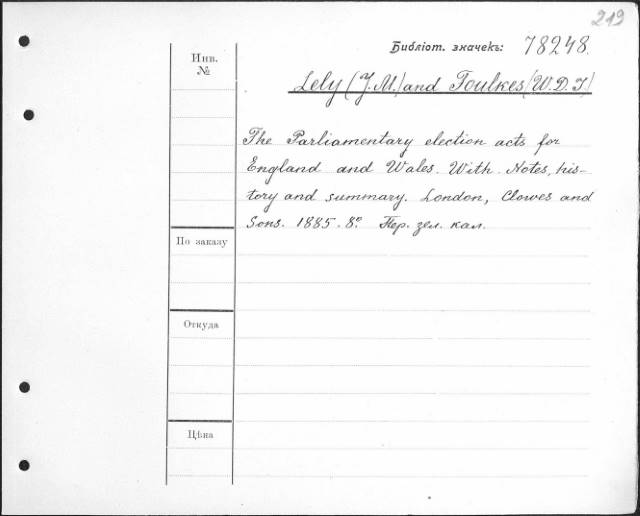 219
Библіот. значекъ: 78248.
Инв.
№
Lely (J.M.) and Foulkes (W.D.I.)
The Parliamentary election acts for
England and Wales. With Notes, his-
tory and summary. London, Clowes and
Sons. 1885. 8º. Пер. зел. кал.
По заказу
Откуда
Цѣна